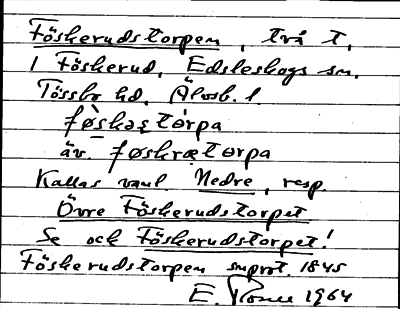 Föskerudstorpen, två t.
I Föskerud, Edsleskogs sn.
Tössbo hd. Älvsb. l.
føskəʂtòrpa
äv. føskrætorpa
Kallas vanl. Nedre, resp.
Övre Föskerudstorpet
Se och Föskerudstorpet!
Föskerudstorpen smprot. 1845
E. 1964